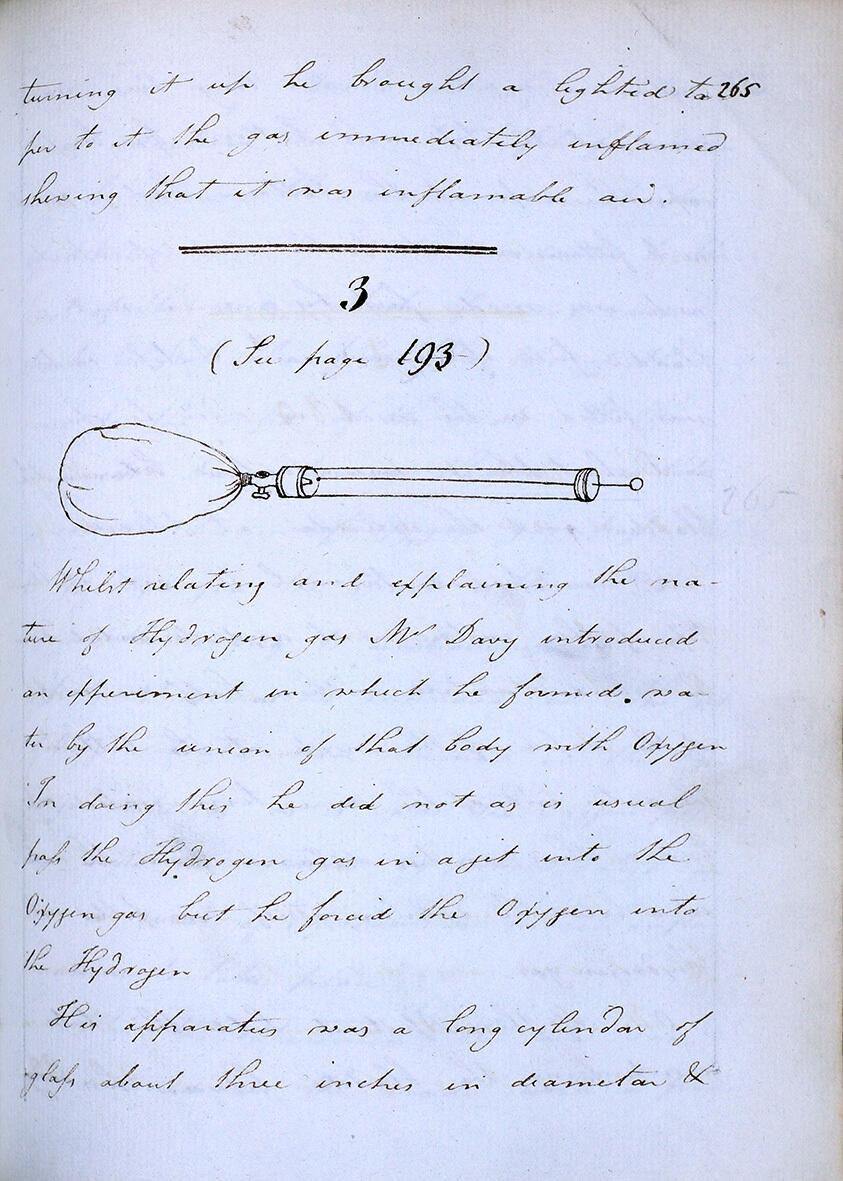 265
turning it up he brought a lighted ta
per to it the gas immediately inflamed
shewing that it was inflamable air.
3
(See page 193)
Whilst relating and explaining the na-
ture of Hydrogen gas Mr Davy introduced
an experiment in which he formed wa-
ter by the union of that body with Oxygen
In doing this he did not as is usual
pass the Hydrogen gas in a jet into the
Oxygen gas but he forced the Oxygen into
the Hydrogen
His apparatus was a long cylindar of
glass about three inches in diametar &